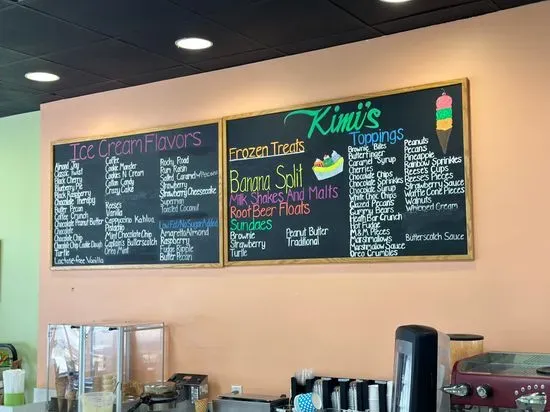 Ice Cream Flavors
Almond Joy
Classic Twist
Black Cherry
Blueberry Pie
Black Raspberry
Chocolate Therapy
Butter Pecan
Coffee Crunch
Chocolate Peanut Butter
Chocolate
Chocolate Chip
Chocolate Chip Cookie Dough
Turtle
Lactose-free Vanilla
Coffee
Cookie Monster
Cookies N Cream
Cotton Candy
Crazy Cake
Reese's
Vanilla
Cappuccino Kahlua
Pistachio
Mint Chocolate Chip
Captain's Butterscotch
Oreo Mint
Rocky Road
Rum Raisin
Sea Salt Caramel
Strawberry
Strawberry Cheesecake
Superman
Toasted Coconut
Amaretto Almond
Raspberry
Fudge Ripple
Butter Pecan
Kimi's
Frozen Treats
Banana Split
Milk Shakes And Malts
Root Beer Floats
Sundaes
Brownie
Strawberry
Turtle
Peanut Butter
Traditional
Toppings
Brownie Bites
Butterfinger
Caramel Syrup
Cherries
Chocolate Chips
Chocolate Sprinkles
Chocolate Syrup
White Choc Chips
Glazed Pecans
Gummy Bears
Heath Bar Crunch
Hot Fudge
M&M Pieces
Marshmallows
Marshmallow Sauce
Oreo Crumbles
Peanuts
Pecans
Pineapple
Rainbow Sprinkles
Reese's Cups
Reese's Pieces
Strawberry Sauce
Waffle Cone Pieces
Walnuts
Whipped Cream
Butterscotch Sauce